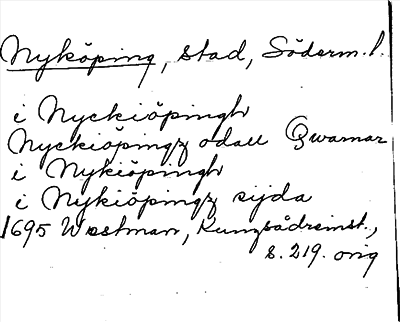 Nyköping, stad, Söderm. l.
i Nyckiöpingh
Nyckiöpingz odall Qwarnar
i Nykiöpingh
i Nykiöpingz sijda
1695 Westman, Kungsådreinst.,
s. 219. orig